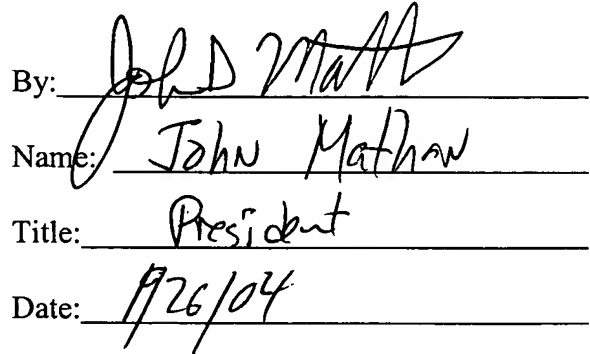 By: John D
Name: John Mathaw
Title: President
Date: 1/26/04